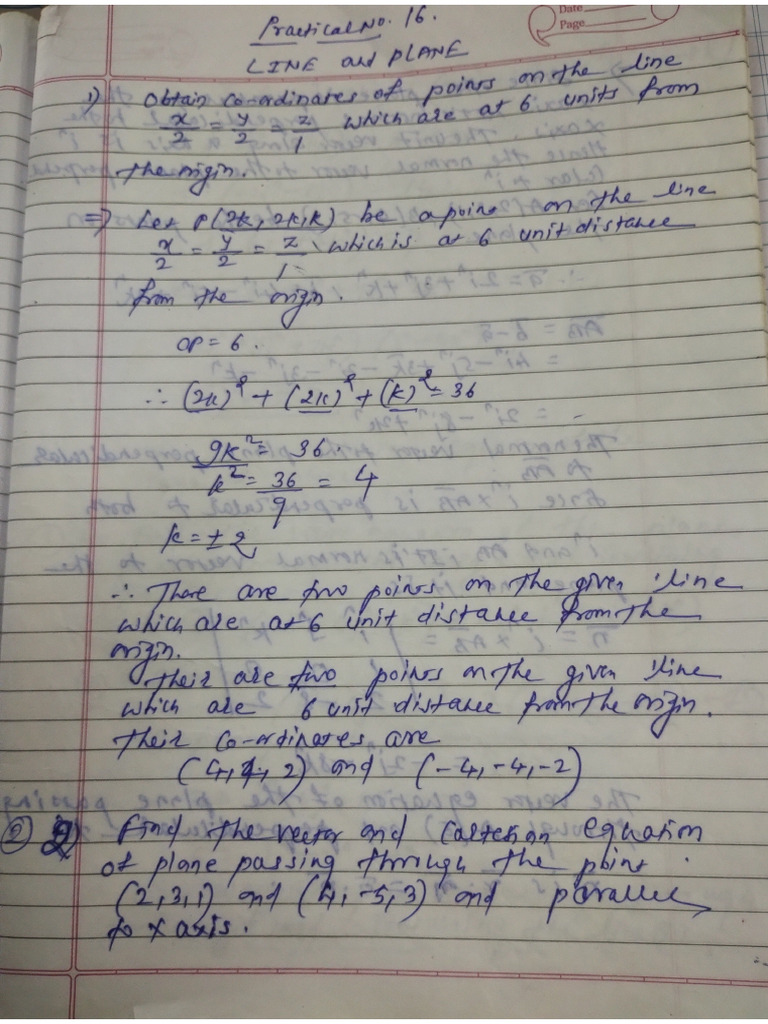 Date
Page
Practical No. 16.
LINE and PLANE
1) Obtain co-ordinates of points on the line
x/2 = y/2 = z/1 which are at 6 units from
the origin.
=> Let P(2k, 2k, k) be a point on the line
x/2 = y/2 = z/1 which is at 6 unit distance
from the origin.
OP = 6.
∴ (2k)² + (2k)² + (k)² = 36
9k² = 36.
k² = 36/9 = 4
k = ± 2
∴ There are two points on the given line
which are at 6 unit distance from the
origin.
Their are two points on the given line
which are 6 unit distance from the origin.
Their co-ordinates are
(4, 4, 2) and (-4, -4, -2)
② 2) Find the vector and Cartesian equation
of plane passing through the point
(2, 3, 1) and (4, -5, 3) and parallel
to x axis.